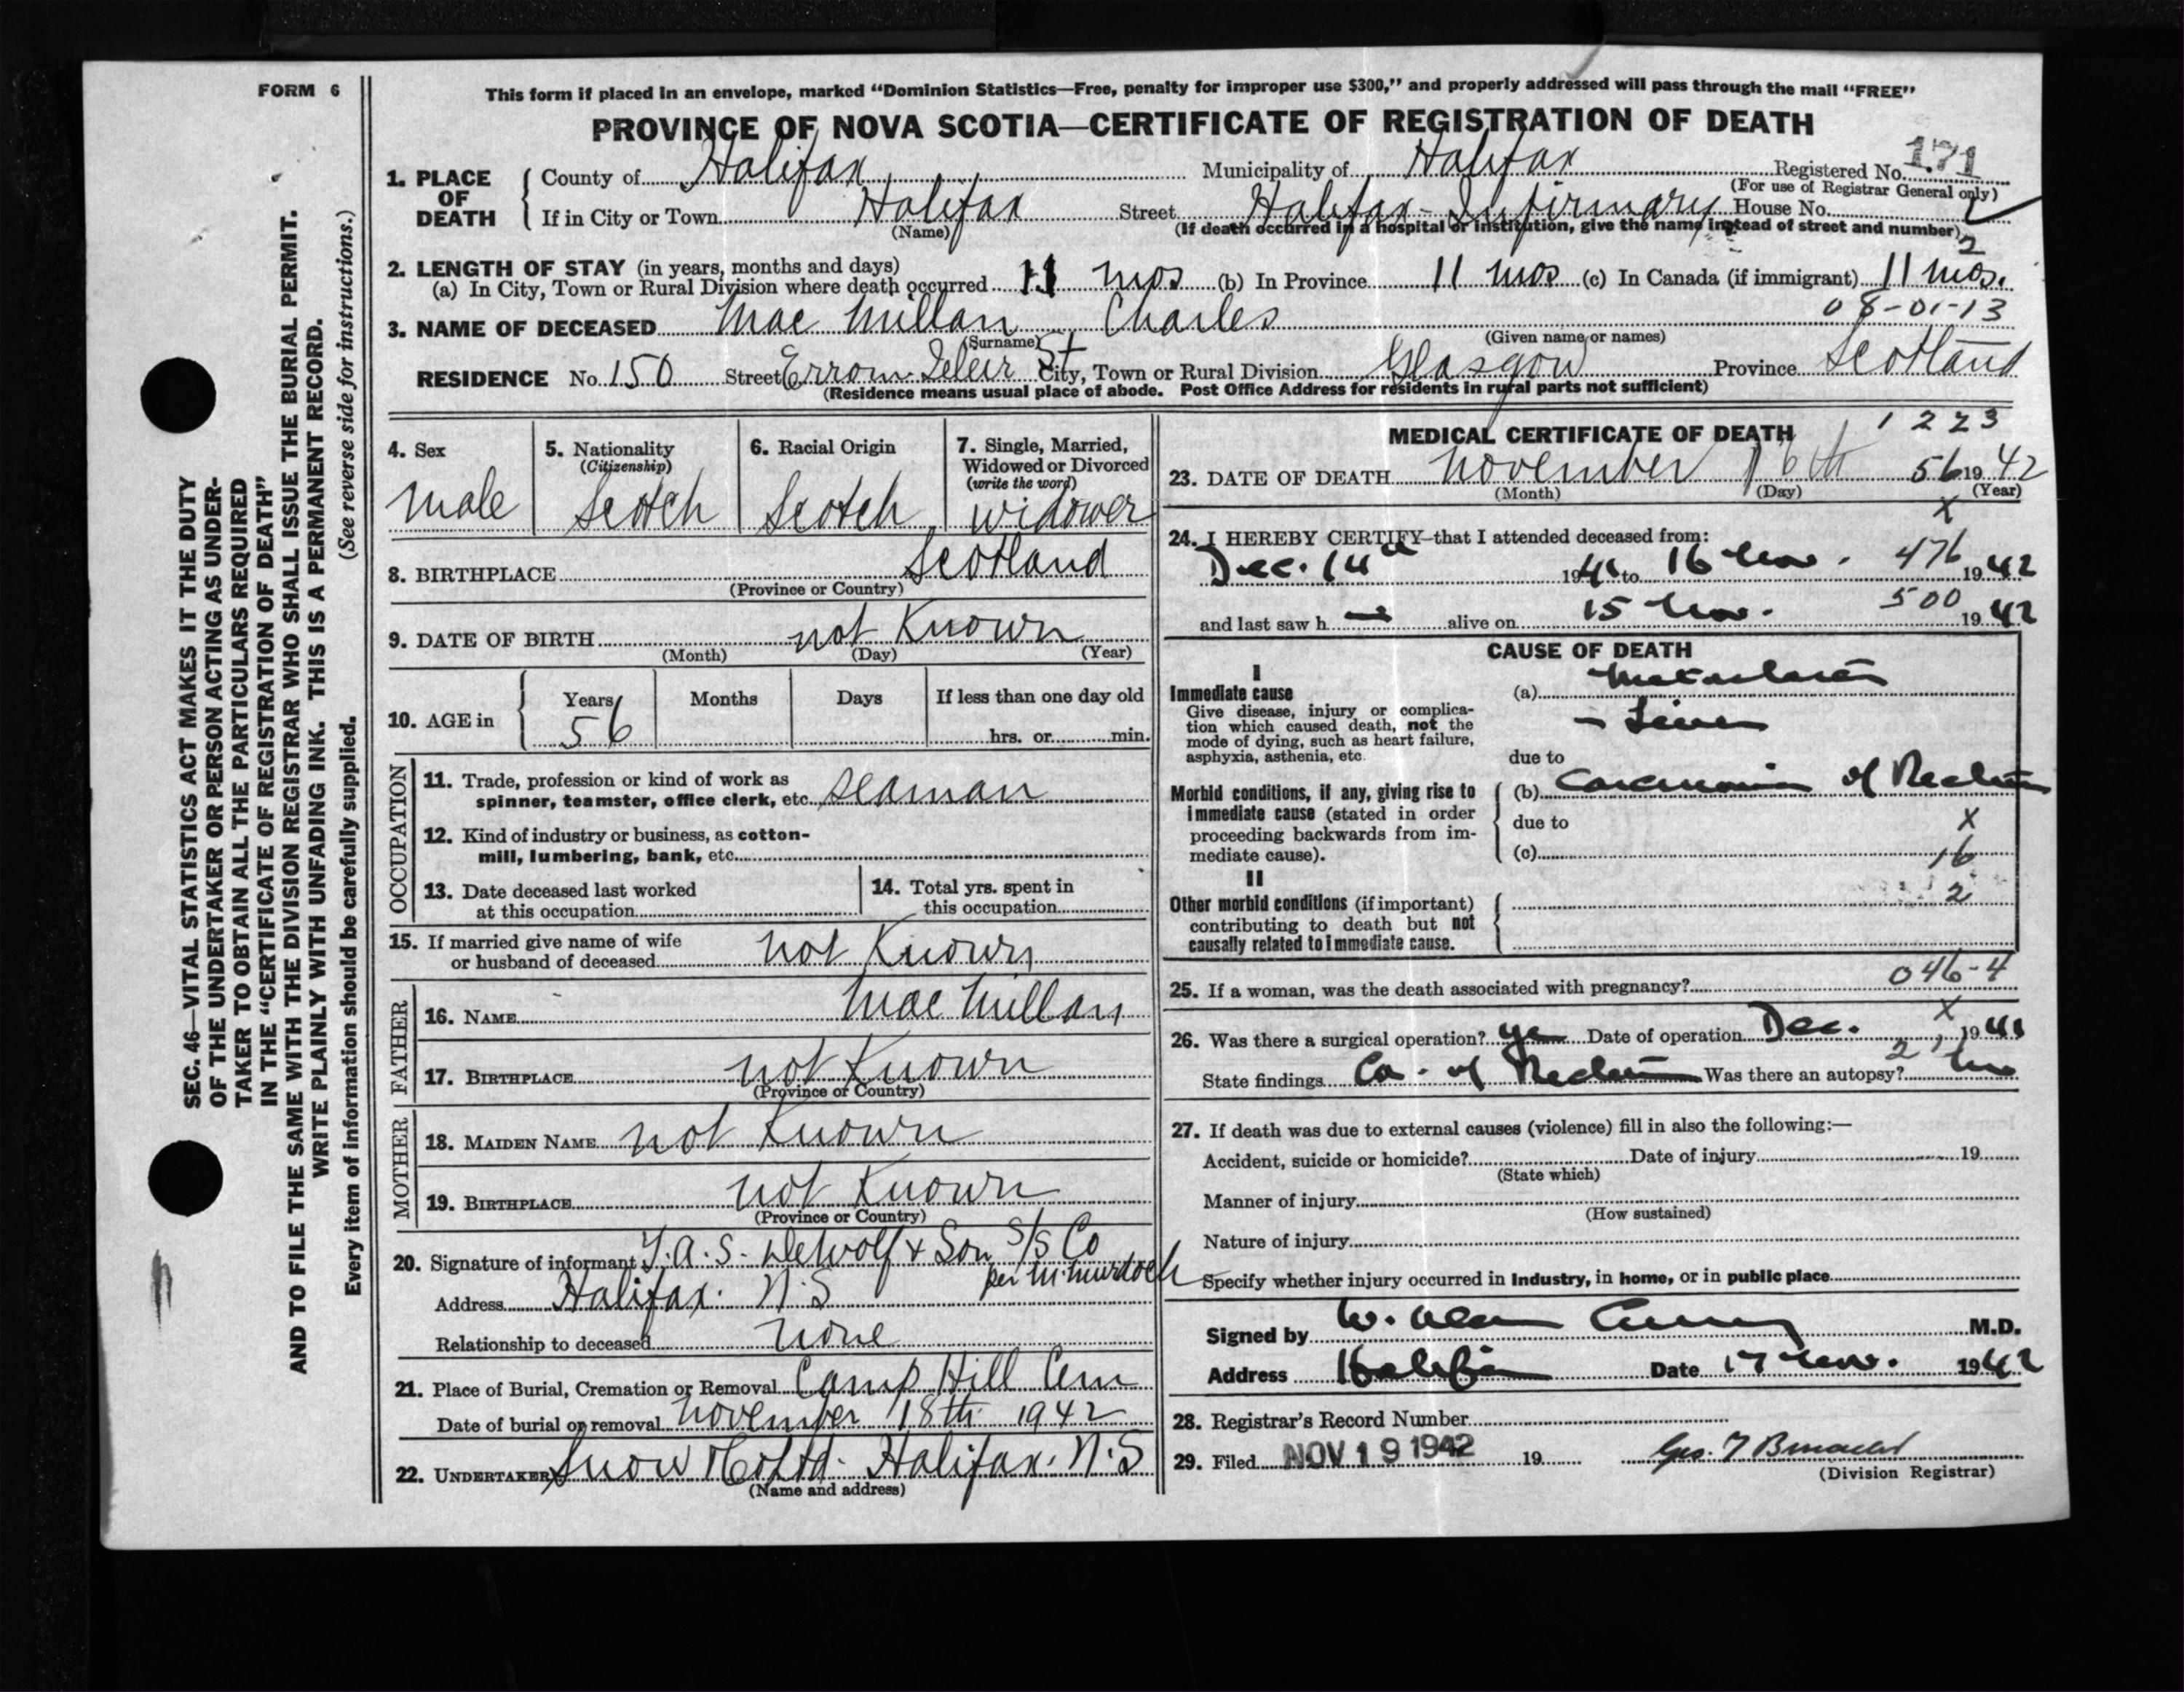 FORM 6
This form if placed in an envelope, marked “Dominion Statistics—Free, penalty for improper use $300,” and properly addressed will pass through the mail “FREE”
PROVINCE OF NOVA SCOTIA—CERTIFICATE OF REGISTRATION OF DEATH
SEC. 46—VITAL STATISTICS ACT MAKES IT THE DUTY
OF THE UNDERTAKER OR PERSON ACTING AS UNDER-
TAKER TO OBTAIN ALL THE PARTICULARS REQUIRED
IN THE “CERTIFICATE OF REGISTRATION OF DEATH”
AND TO FILE THE SAME WITH THE DIVISION REGISTRAR WHO SHALL ISSUE THE BURIAL PERMIT.
WRITE PLAINLY WITH UNFADING INK. THIS IS A PERMANENT RECORD.
Every item of information should be carefully supplied. (See reverse side for instructions.)
1. PLACE OF DEATH County of Halifax Municipality of Halifax Registered No. 171
(For use of Registrar General only)
If in City or Town Halifax Street Halifax - Infirmary House No.
(Name) (If death occurred in a hospital or institution, give the name instead of street and number)
2
2. LENGTH OF STAY (in years, months and days)
(a) In City, Town or Rural Division where death occurred 11 mos (b) In Province 11 mos (c) In Canada (if immigrant) 11 mos.
08-01-13
3. NAME OF DECEASED Mac Millan, Charles
(Surname) (Given name or names)
RESIDENCE No. 150 Street St City, Town or Rural Division Glasgow Province Scotland
(Residence means usual place of abode. Post Office Address for residents in rural parts not sufficient)
4. Sex male
5. Nationality (Citizenship) Scotch
6. Racial Origin Scotch
7. Single, Married, Widowed or Divorced (write the word) widower
8. BIRTHPLACE Scotland
(Province or Country)
9. DATE OF BIRTH not Known
(Month) (Day) (Year)
10. AGE in Years 56 Months Days If less than one day old
hrs. or min.
OCCUPATION
11. Trade, profession or kind of work as
spinner, teamster, office clerk, etc. seaman
12. Kind of industry or business, as cotton-
mill, lumbering, bank, etc.
13. Date deceased last worked
at this occupation
14. Total yrs. spent in
this occupation
15. If married give name of wife
or husband of deceased not Known
FATHER
16. NAME Mac Millan
17. BIRTHPLACE not Known
(Province or Country)
MOTHER
18. MAIDEN NAME not Known
19. BIRTHPLACE not Known
(Province or Country)
20. Signature of informant T.A.S. DeWolf & Son S/S Co
per M. Murdoch
Address Halifax. N.S
Relationship to deceased none
21. Place of Burial, Cremation or Removal Camp Hill Cem
Date of burial or removal November 18th 1942
22. UNDERTAKER Snow & Co Ltd. Halifax. N.S
(Name and address)
MEDICAL CERTIFICATE OF DEATH
1 2 2 3
23. DATE OF DEATH November 16th 56 1942
(Month) (Day) (Year)
X
24. I HEREBY CERTIFY that I attended deceased from:
Dec. 14th 1941 to 16 Nov. 476 1942
and last saw h alive on 15 Nov. 500 1942
CAUSE OF DEATH
I
Immediate cause
Give disease, injury or complica-
tion which caused death, not the
mode of dying, such as heart failure,
asphyxia, asthenia, etc.
(a) Metastasis
- Liver
due to
Morbid conditions, if any, giving rise to
immediate cause (stated in order
proceeding backwards from im-
mediate cause).
(b) Carcinoma of Rectum
due to X
(c) 16
II
Other morbid conditions (if important)
contributing to death but not
causally related to immediate cause.
2
046-4
25. If a woman, was the death associated with pregnancy?
X
26. Was there a surgical operation? yes Date of operation Dec. 1941
2
State findings Ca. of Rectum Was there an autopsy? No
27. If death was due to external causes (violence) fill in also the following:—
Accident, suicide or homicide? Date of injury 19
(State which)
Manner of injury
(How sustained)
Nature of injury
Specify whether injury occurred in Industry, in home, or in public place
Signed by W. Alan Curry M.D.
Address Halifax Date 17 Nov. 1942
28. Registrar’s Record Number
29. Filed NOV 19 1942 19 Geo.
(Division Registrar)